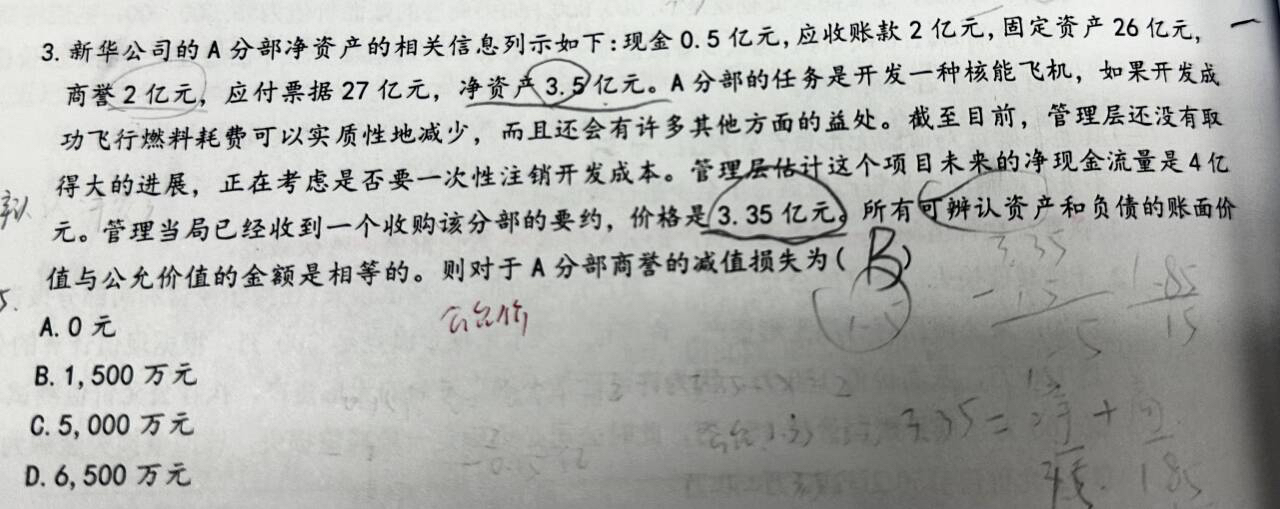 3. 新华公司的 A 分部净资产的相关信息列示如下:现金 0.5 亿元,应收账款 2 亿元,固定资产 26 亿元,
商誉 2 亿元,应付票据 27 亿元,净资产 3.5 亿元。A 分部的任务是开发一种核能飞机,如果开发成
功飞行燃料耗费可以实质性地减少,而且还会有许多其他方面的益处。截至目前,管理层还没有取
得大的进展,正在考虑是否要一次性注销开发成本。管理层估计这个项目未来的净现金流量是 4 亿
元。管理当局已经收到一个收购该分部的要约,价格是 3.35 亿元。所有可辨认资产和负债的账面价
值与公允价值的金额是相等的。则对于 A 分部商誉的减值损失为( B )
3.35
- 1.5
1.85
15
1.5
A. 0 元
公允价
B. 1,500 万元
C. 5,000 万元
3.35 = +
1.85
D. 6,500 万元